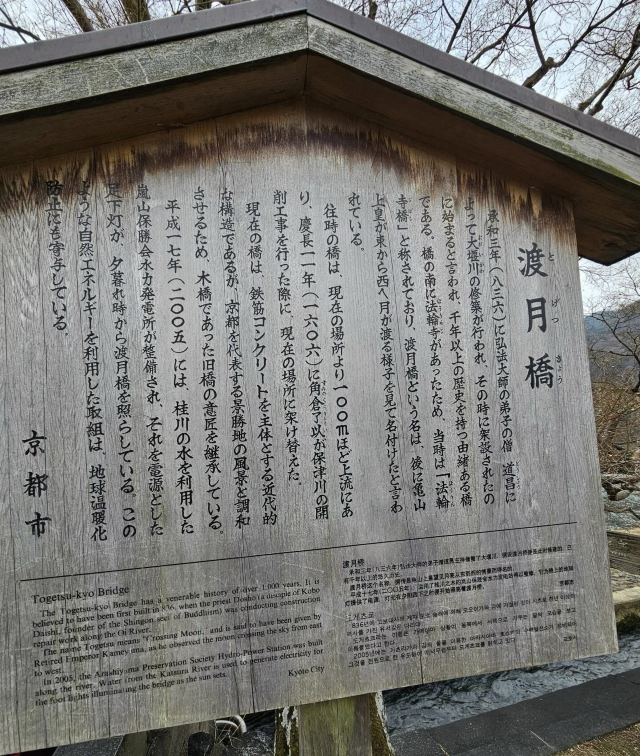 渡月橋
とげつきょう
承和三年(八三六)に弘法大師の弟子の僧 道昌に
よって大堰川の修築が行われ、その時に架設されたの
に始まると言われ、千年以上の歴史を持つ由緒ある橋
である。橋の南に法輪寺があったため、当時は「法輪
寺橋」と称されており、渡月橋という名は、後に亀山
上皇が東から西へ月が渡る様子を見て名付けたと言わ
れている。
往時の橋は、現在の場所より一〇〇mほど上流にあ
り、慶長一一年(一六〇六)に角倉了以が保津川の開
削工事を行った際に、現在の場所に架け替えた。
現在の橋は、鉄筋コンクリートを主体とする近代的
な構造であるが、京都を代表する景勝地の風景と調和
させるため、木橋であった旧橋の意匠を継承している。
平成一七年(二〇〇五)には、桂川の水を利用した
嵐山保勝会水力発電所が整備され、それを電源とした
足下灯が、夕暮れ時から渡月橋を照らしている。この
ような自然エネルギーを利用した取組は、地球温暖化
防止にも寄与している。
京都市
Togetsu-kyo Bridge
The Togetsu-kyo Bridge has a venerable history of over 1,000 years. It is
believed to have been first built in 836, when the priest Dosho (a disciple of Kobo
Daishi, founder of the Shingon sect of Buddhism) was conducting construction
repair work along the Oi River.
The name Togetsu means "Crossing Moon," and is said to have been given by
Retired Emperor Kameyama, as he observed the moon crossing the sky from east
to west.
In 2005, the Arashiyama Preservation Society Hydro-Power Station was built
along the river. Water from the Katsura River is used to generate electricity for
the foot lights illuminating the bridge as the sun sets.
Kyoto City
渡月桥
도게츠교